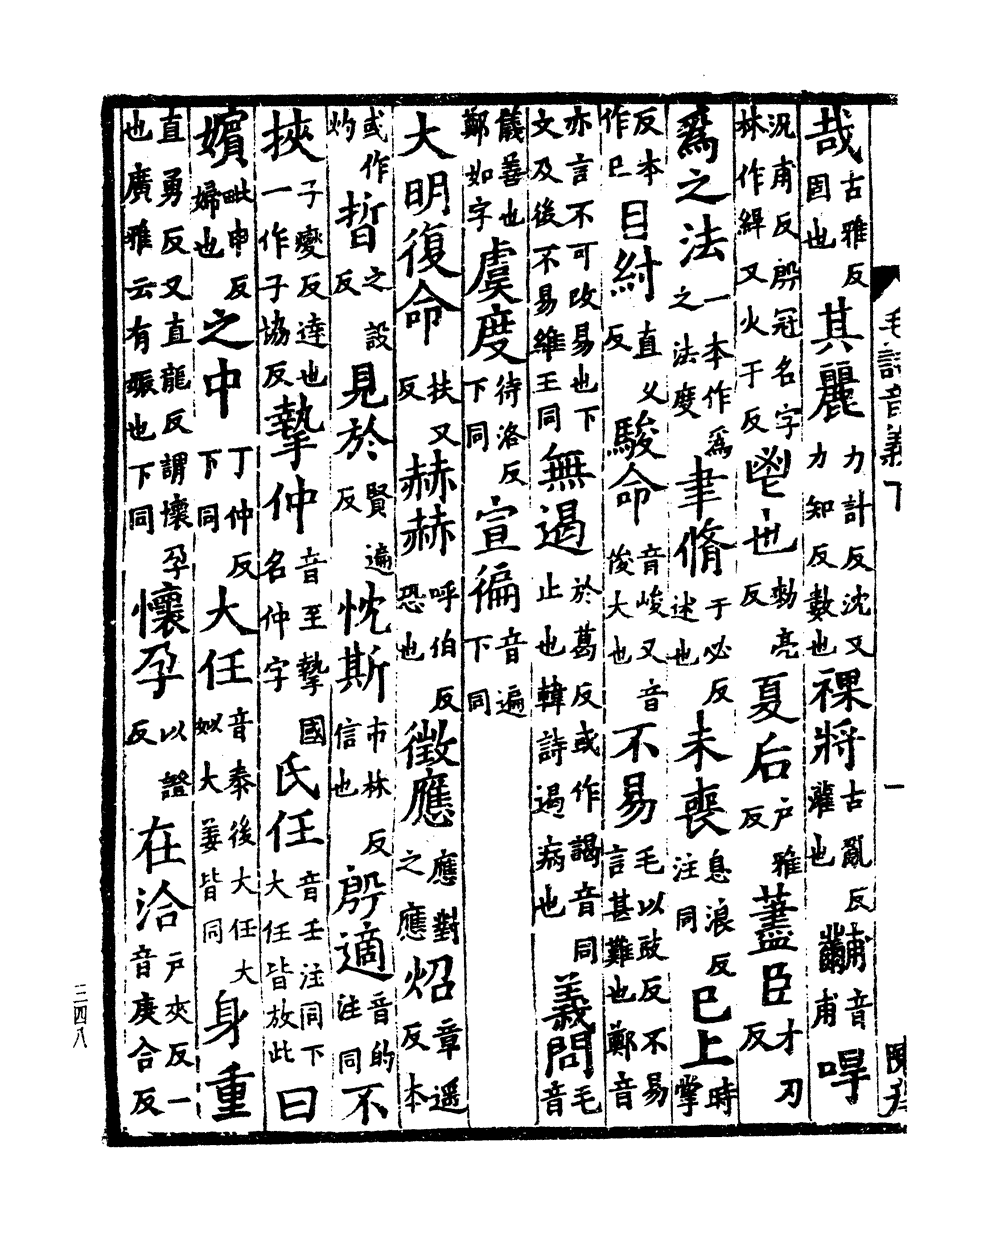 哉古雅反固也其麗力計反沈又力知反數也祼將古亂反灌也黼音甫哻
況甫反殷冠名字林作又火于反鬯也勑亮反夏后戶雅反藎臣才刃反
爲之法一本作爲之法度聿脩于必反述也未喪息浪反注同巳上時掌
反本作巳目紂直乂反駿命音峻又音俊大也不易毛以豉反不易言甚難也鄭音
亦言不可改易也下文及後不易維王同無遏於葛反或作謁音同止也韓詩遏病也義問毛音
儀善也鄭如字虞度待洛反下同宣徧音遍下同
大明復命扶又反赫赫呼伯反恐也徵應應對之應炤章遥反本
或作灼晢之設反見於賢遍反忱斯市林反信也殷適音的注同不
挾子變反逹也一作子協反摯仲音至摯國名仲字氏任音壬注同下大任皆放此曰
嬪毗申反婦也之中丁仲反下同大任音泰後大任大姒大姜皆同身重
直勇反又直龍反謂懷孕也廣雅云有娠也下同懷孕以證反在洽戶夾反一音庚合反
毛詩音義下
一
三四八